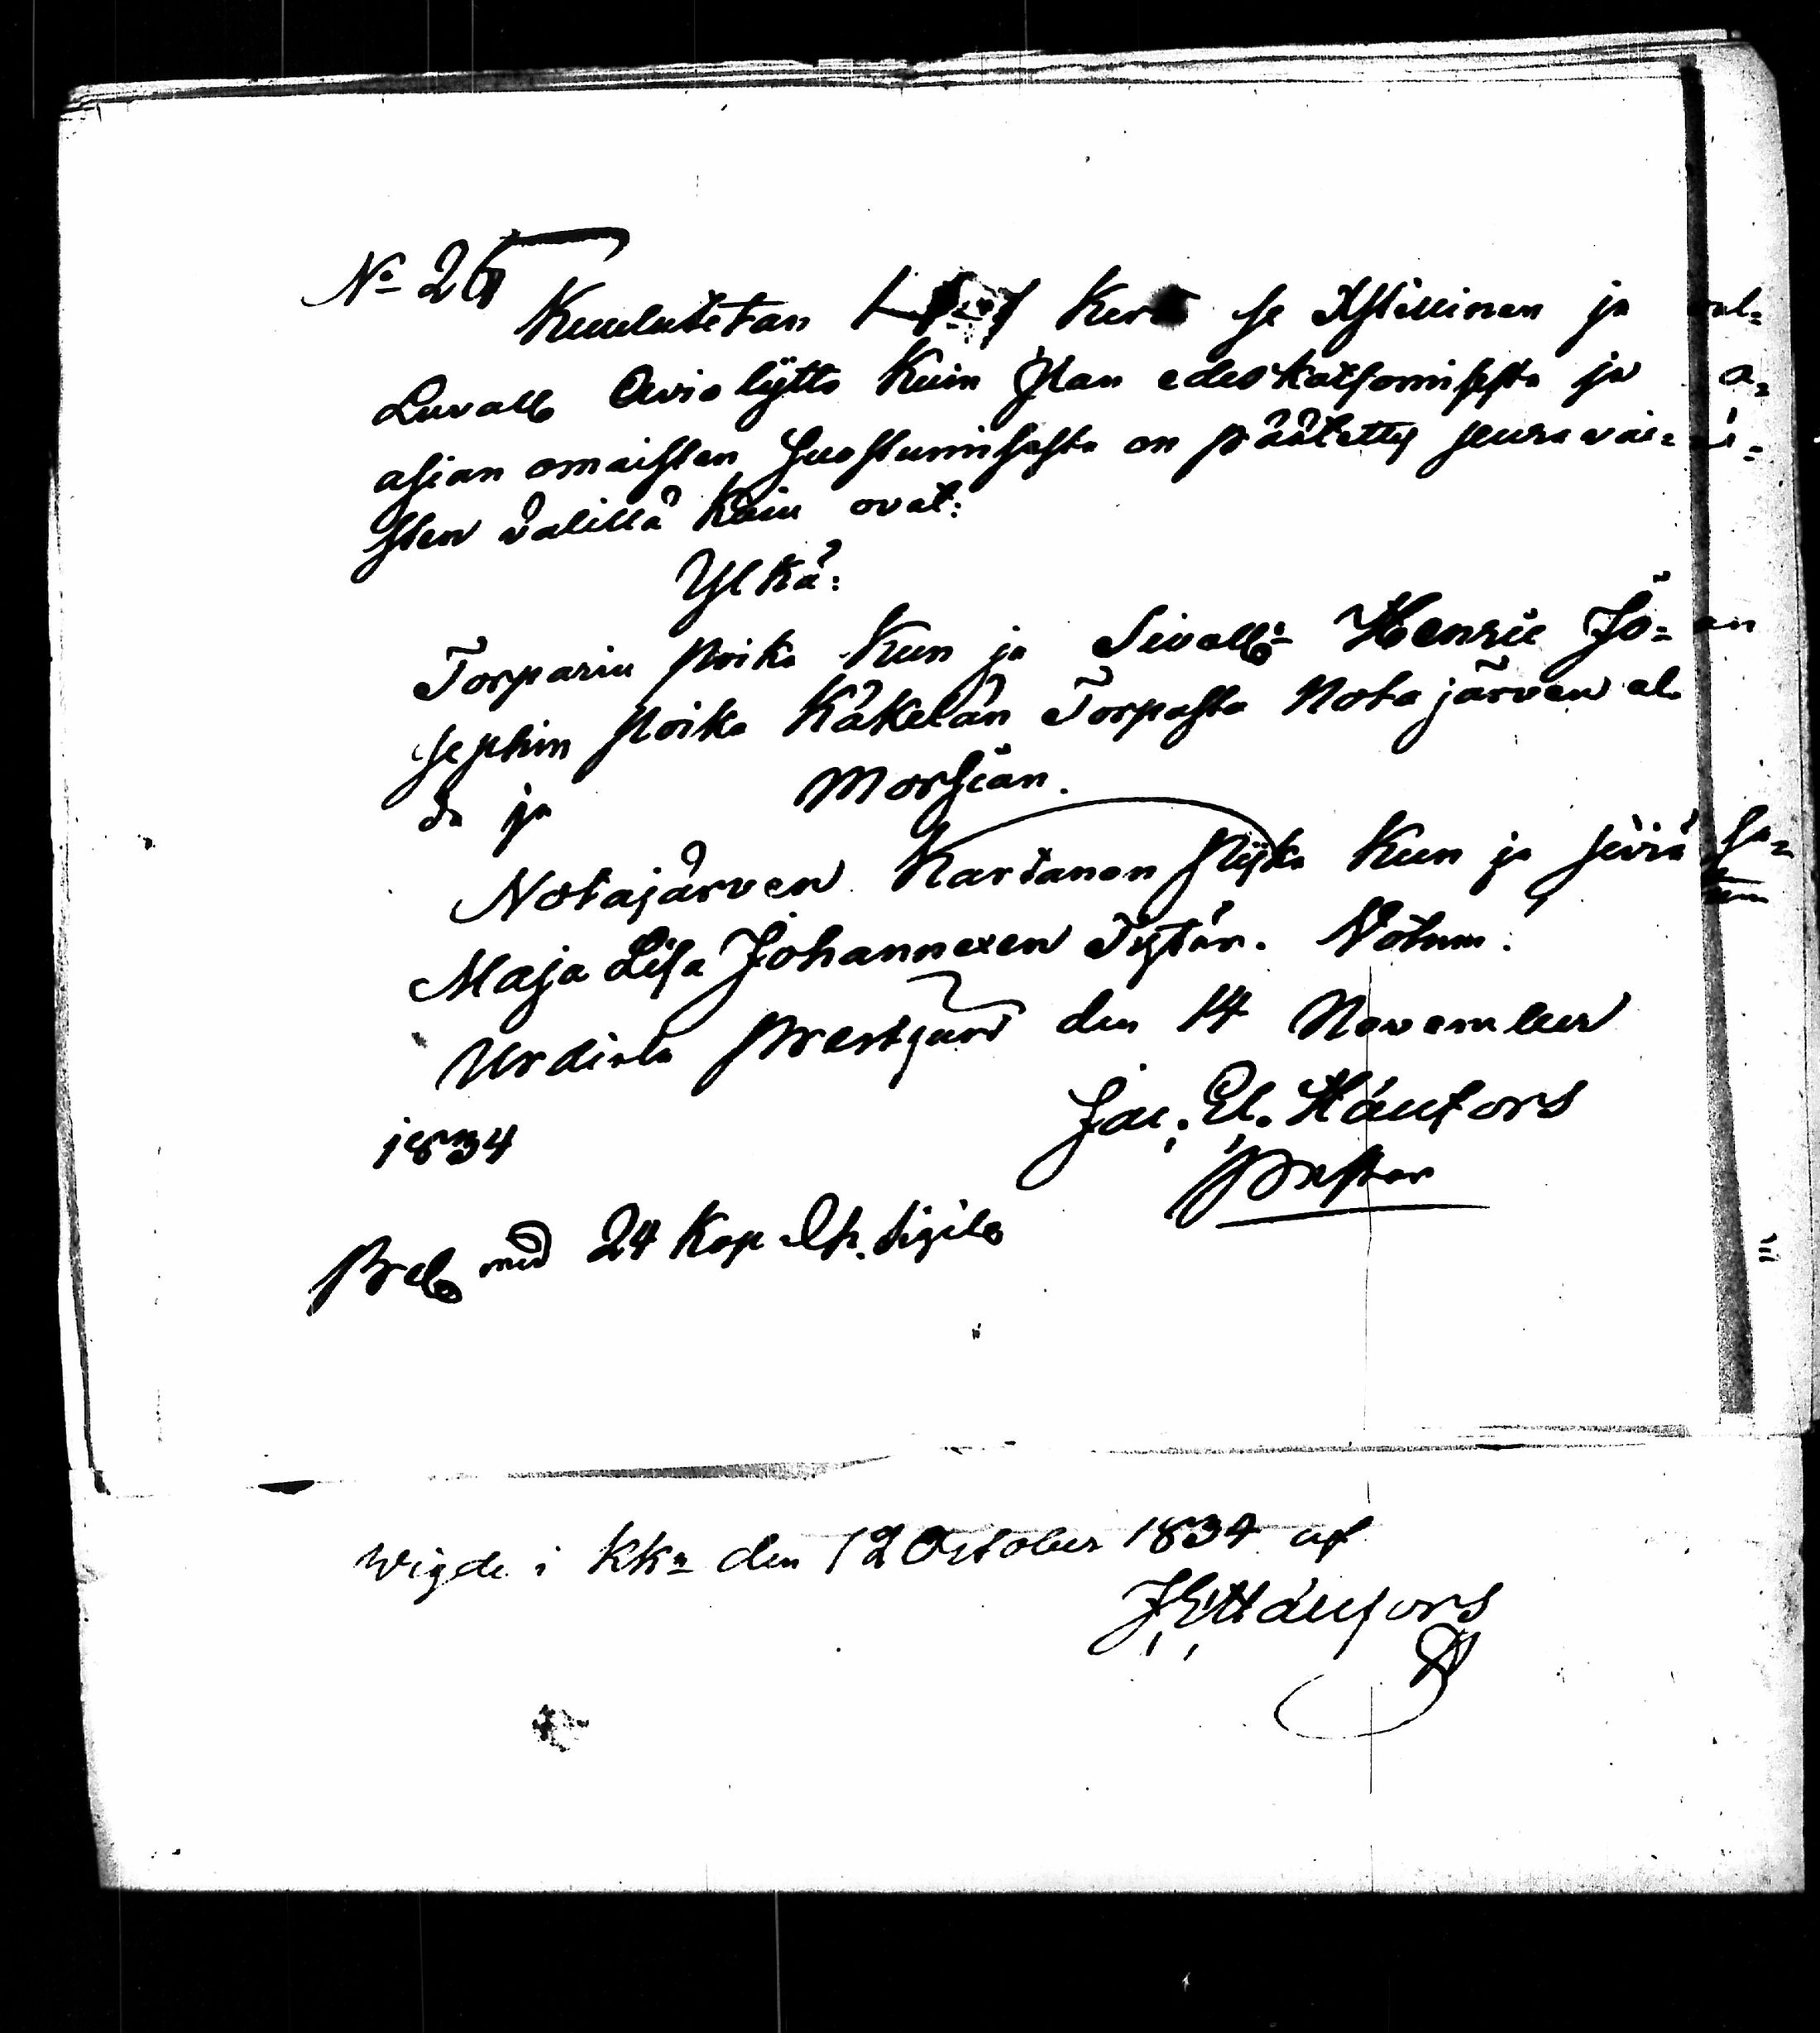 No 25
Kuulutetan Kerta se Xstillinen ja
Luvall. Aviolijtto Kuin Jlan edeskatsomisesta ja
asian omaisten Suostumisesta on päätetty seuravai=
sten välillä Kuin ovat:
Ylkä:
Torparin Poika Kun ja Sivall:n Henric Jo=
sephin Poika Käkelän Torpasta Notajärven al
da ja Morsian.
Notajärven Kartanon Pijka Kun ja siviä
Maja Lisa Johannexen Tytär. Notum.
Urdiala Prestgård den 14 November
1834
Jac. El. Hänfors
Pastor
med 24 Kop. Sigill.
Wigde i Kka den 12 October 1834 af
J. E. Hänfors